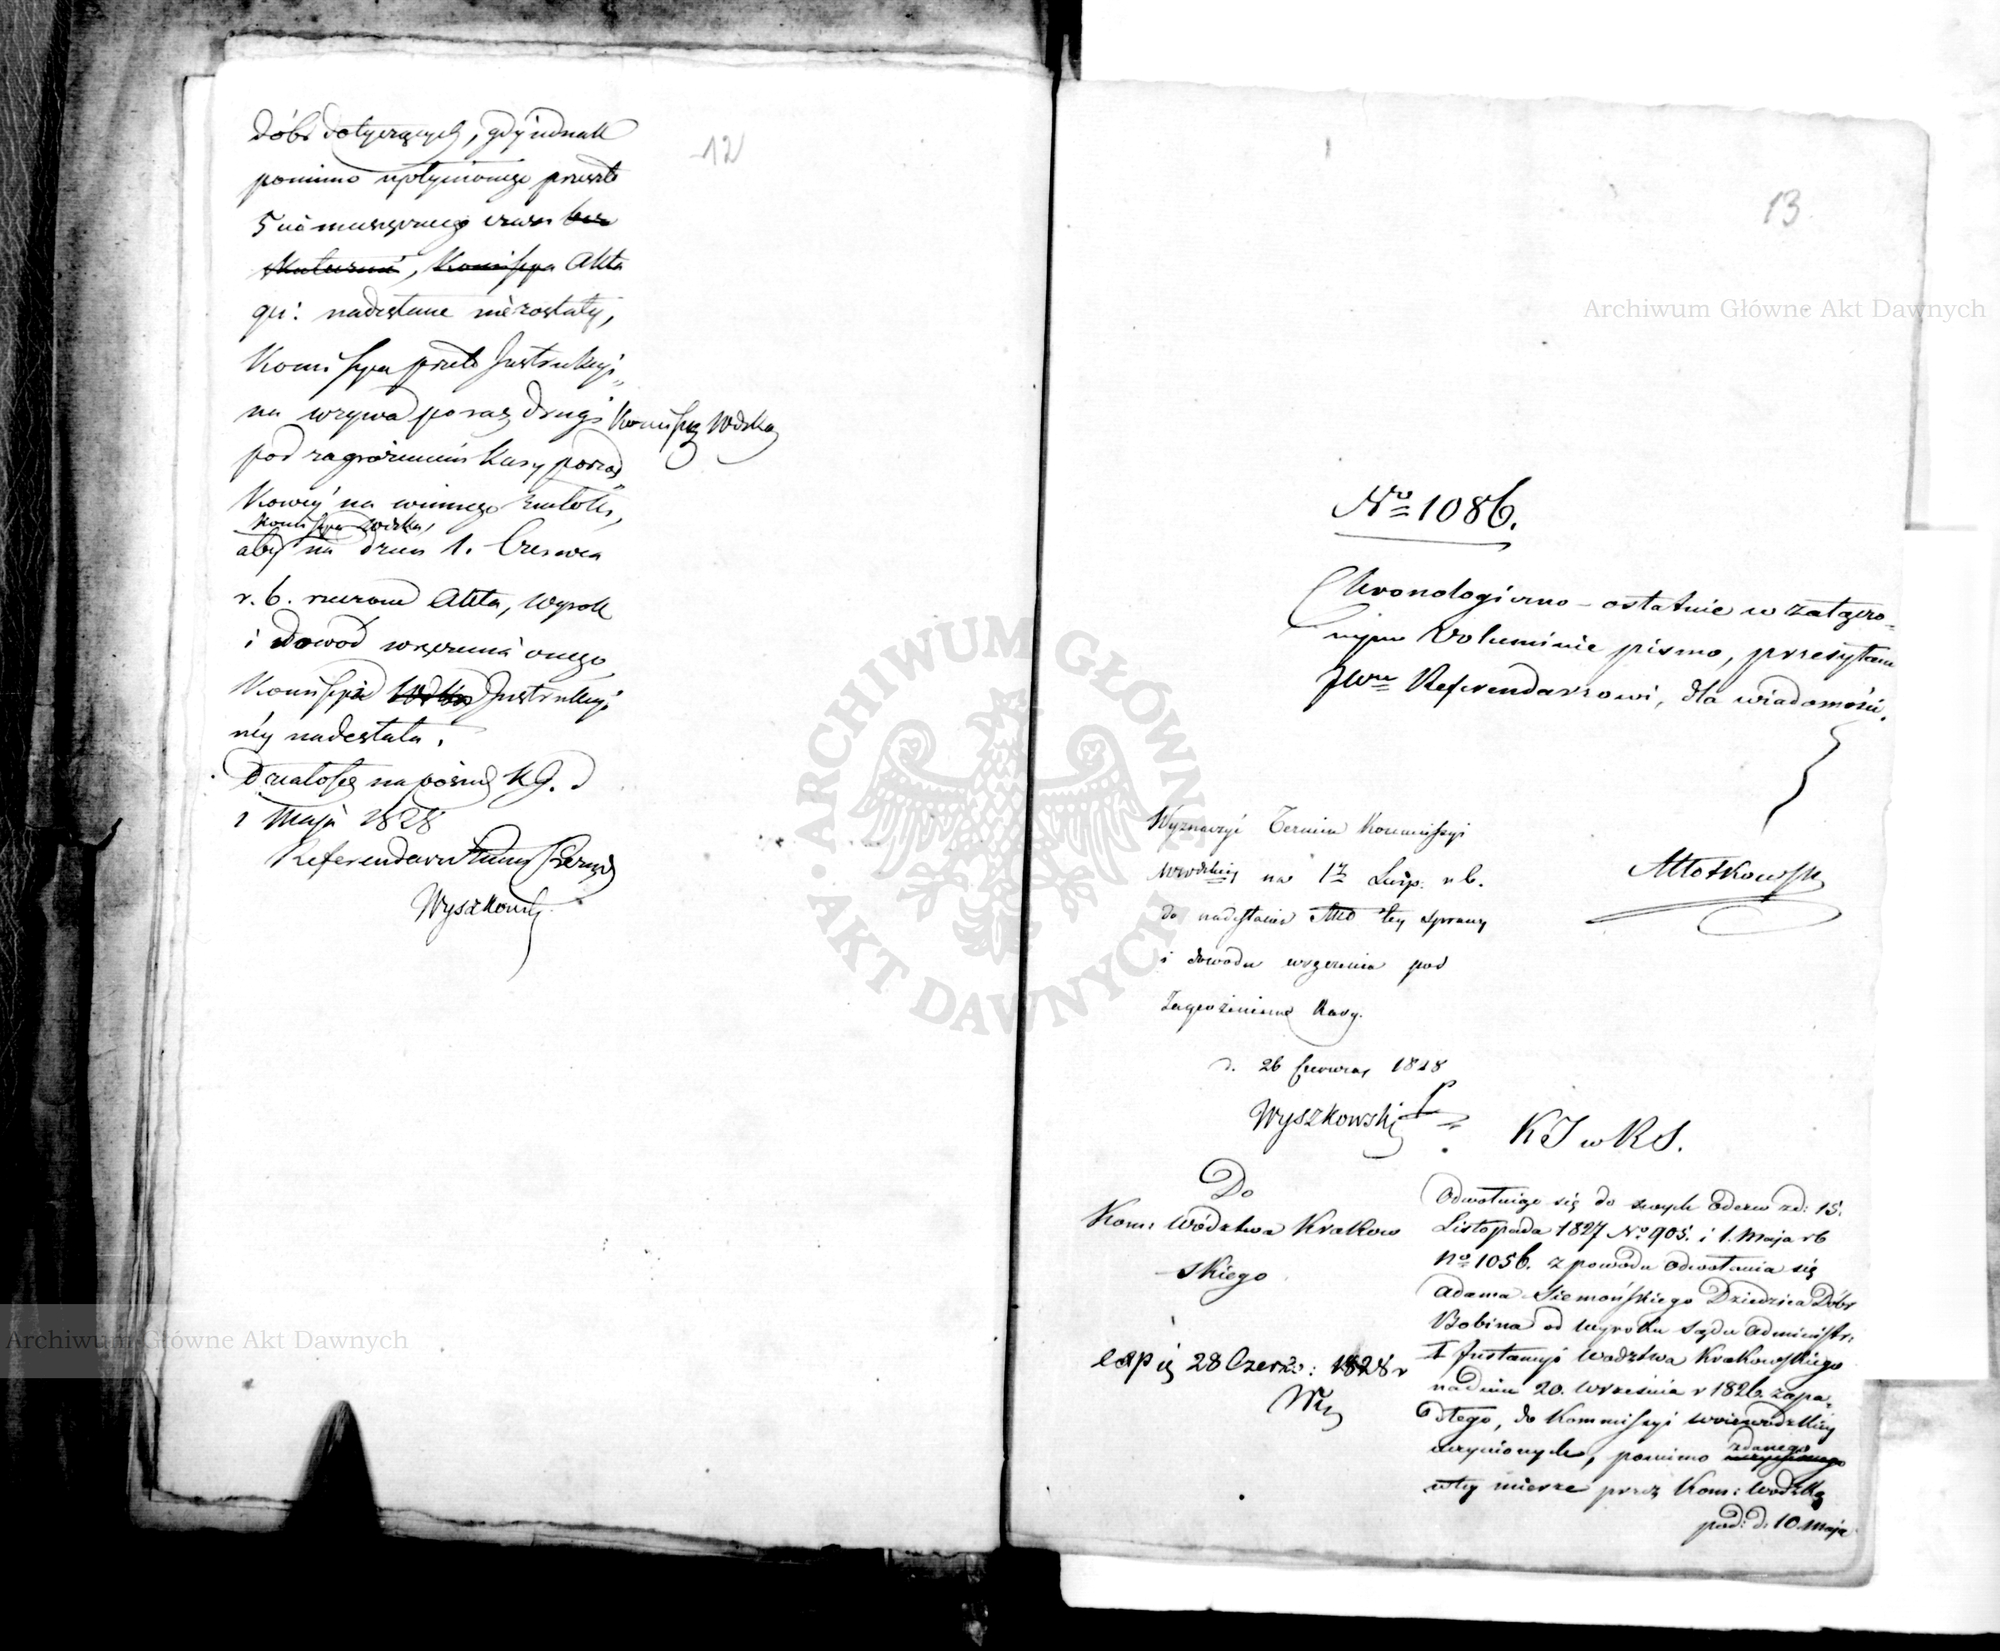 12
dóbr dotyczących, gdy jednak
pomimo upłynionego przeszło
5cio miesięcznego czasu bez
skutecznie, Kommissya Akta
qu: nadesłane nie zostały,
Kommissya przeto Instrukcyi
na wzywa po raz drugi Kommissyę Wdzką
pod zagrożeniem kary porząd
kowey na winnego zwłoki,
Kommissya Wdzka,
aby na dzien 1. Czerwca
r. b. rzeczone Akta, wyrok
i dowod wręczenia onego
Kommissyi Wdzka Instrukcyi
néy nadesłała.
Działo się na posied KJ. d
1 Maja 1828
Referendarz Stanu
Wyszkowski
13
No 1086.
Chronologiczno - ostatnie w załączo-
nym Voluminie pismo, przesyłam
JWmu Referendarzowi, dla wiadomości.
Młoskowski
Wyznaczyć Termin Kommissyi
Wwdzkiey na 1z Lwp. r b.
do nadesłania Akt tey sprawy
i dowodu wręczenia pod
Zagrożeniem Kary.
d. 26 Czerwca 1828
Wyszkowski
KJ w RS.
Do
Kom: Wództwa Krakow
skiego
exp ię 28 Czerw: 1828 r
Odwołuiąc się do swych Odezw zd: 15.
Listopada 1827 No 905. i 1. Maja rb
No 1056. z powodu odwołania się
Adama Siemońskiego Dziedzica Dóbr
Bobina od wyroku Sądu Administr:
I Instancyi Wodztwa Krakowskiego
na dniu 20. Września r 1826 zapa-
dłego, do Kommissyi Woiewodzkiey
uczynionych, pomimo uczynionego
zdanego
w tey mierze przez Kom: Wodzką
pod: d. 10 Maja
Archiwum Główne Akt Dawnych
Archiwum Główne Akt Dawnych
ARCHIWUM GŁÓWNE
AKT DAWNYCH